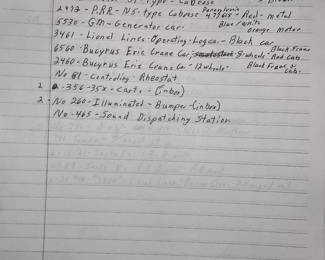 Type - Caboose
PRR - N5 - type Caboose Pennsylvania 477618 - Red - metal
5530 - GM - Generator car - Blue/white orange motor
3461 - Lionel Lines - Operating - Log car - Black car
6560 - Bucyrus Erie Crane Car, 8-wheels Black Frame Red Cab
2460 - Bucyrus Erie Crane Car - 12 wheels - Black Frame & Cab
No 81 - Controling Rheostat
2 356-35x - Carts - (inbox)
2 - No 260 - Illuminated - Bumper - (inbox)
No - 465 - Sound Dispatching Station